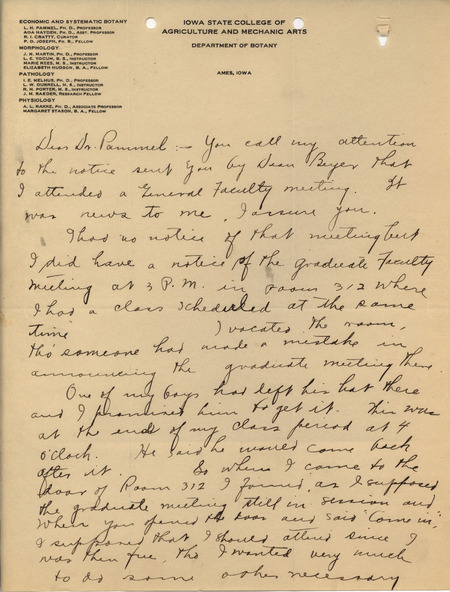 ECONOMIC AND SYSTEMATIC BOTANY
L. H. PAMMEL, PH. D., PROFESSOR
ADA HAYDEN, PH. D., ASST. PROFESSOR
R. I. CRATTY, CURATOR
P. D. JOSEPH, PH. B., FELLOW
MORPHOLOGY
J. N. MARTIN, PH. D., PROFESSOR
L. E. YOCUM, B. S., INSTRUCTOR
MARIE REES, M. S., INSTRUCTOR
ELIZABETH HUDSON, B. A., FELLOW
PATHOLOGY
I. E. MELHUS, PH. D., PROFESSOR
L. W. DURRELL, M. S., INSTRUCTOR
R. H. PORTER, M. S., INSTRUCTOR
J. M. RAEDER, RESEARCH FELLOW
PHYSIOLOGY
A. L. BAKKE, PH. D., ASSOCIATE PROFESSOR
MARGARET STASON, B. A., FELLOW
IOWA STATE COLLEGE OF
AGRICULTURE AND MECHANIC ARTS
DEPARTMENT OF BOTANY
AMES, IOWA
Dear Dr. Pammel:— You call my attention
to the notice sent you by Dean Beyer that
I attended a General Faculty meeting. It
was news to me, I assure you.
I had no notice of that meeting but
I did have a notice of the graduate Faculty
meeting at 3 P.M. in room 312 where
I had a class scheduled at the same
time I vacated the room,
tho' someone had made a mistake in
announcing the graduate meeting there.
One of my boys had left his hat there
and I promised him to get it. This was
at the end of my class period at 4
o'clock. He said he would come back
after it. So when I come to the
door of Room 312 I found, as I supposed
the graduate meeting still in session and
when you opened the door and said "Come in",
I supposed that I should attend since I
was then free, tho I wanted very much
to do some other necessary